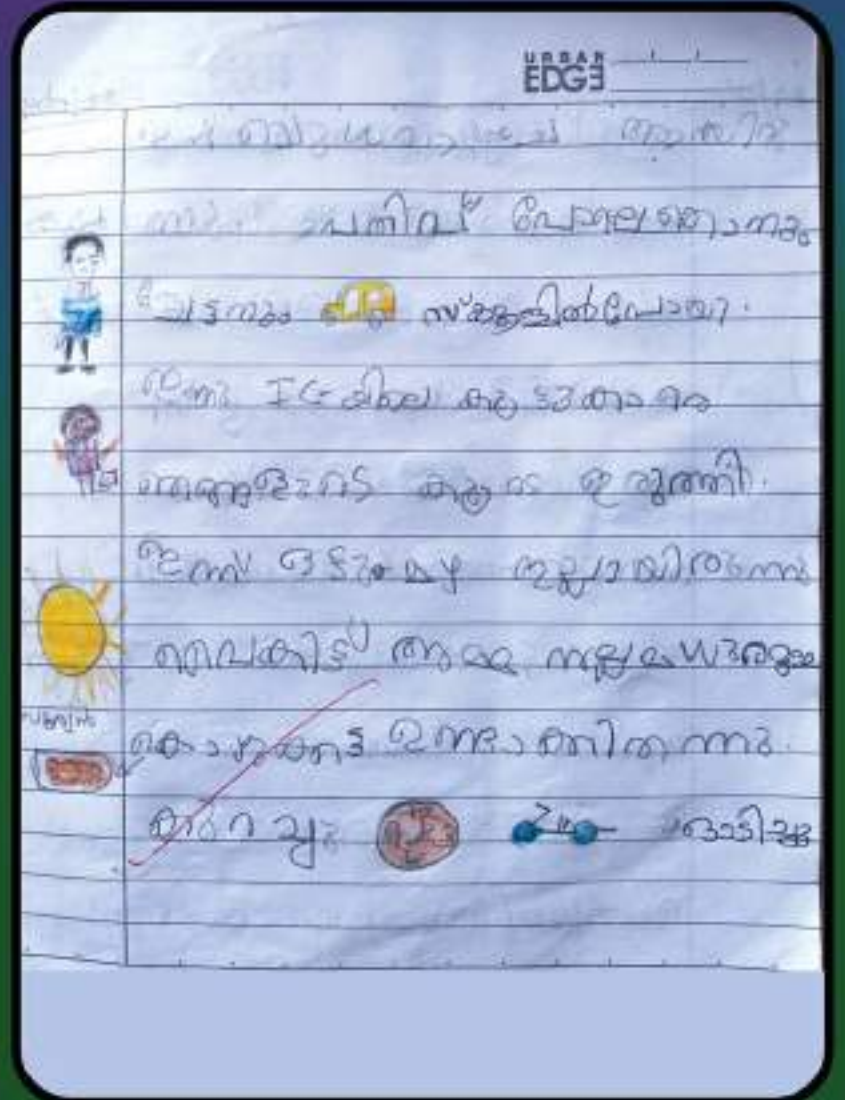 URBAN
EDGE
പതിവ് പോലെ ഞാനും
ചേട്ടനും സ്കൂളിൽ പോയി.
ഇന്നു IG യിലെ കൂട്ടുകാരെ
ഞങ്ങളുടെ കൂടെ ഇരുത്തി.
ഇന്ന് ഒട്ടും മഴ ഇല്ലായിരുന്നു
വൈകിട്ട് അമ്മ നല്ല മധുരമുള്ള
കൊഴുക്കട്ട ഉണ്ടാക്കി തന്നു.
കുറച്ചു ഓടിച്ചു